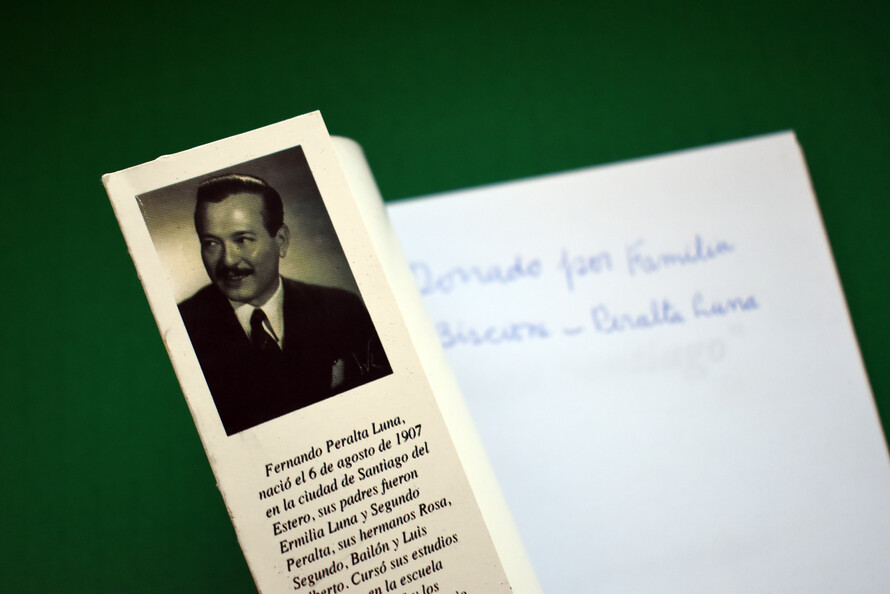 Fernando Peralta Luna,
nació el 6 de agosto de 1907
en la ciudad de Santiago del
Estero, sus padres fueron
Ermilia Luna y Segundo
Peralta, sus hermanos Rosa,
Segundo, Bailón y Luis
lberto. Cursó sus estudios
en la escuela
y los
Donado por Familia
Biscione - Peralta Luna